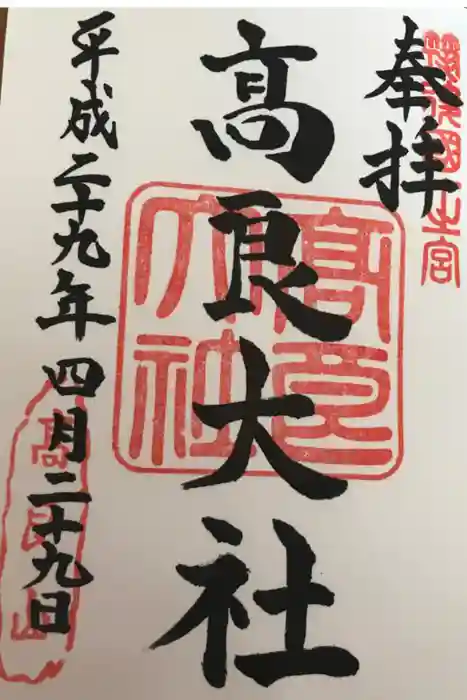 奉拝
高良大社
平成二十九年四月二十九日
高良大社
高良山